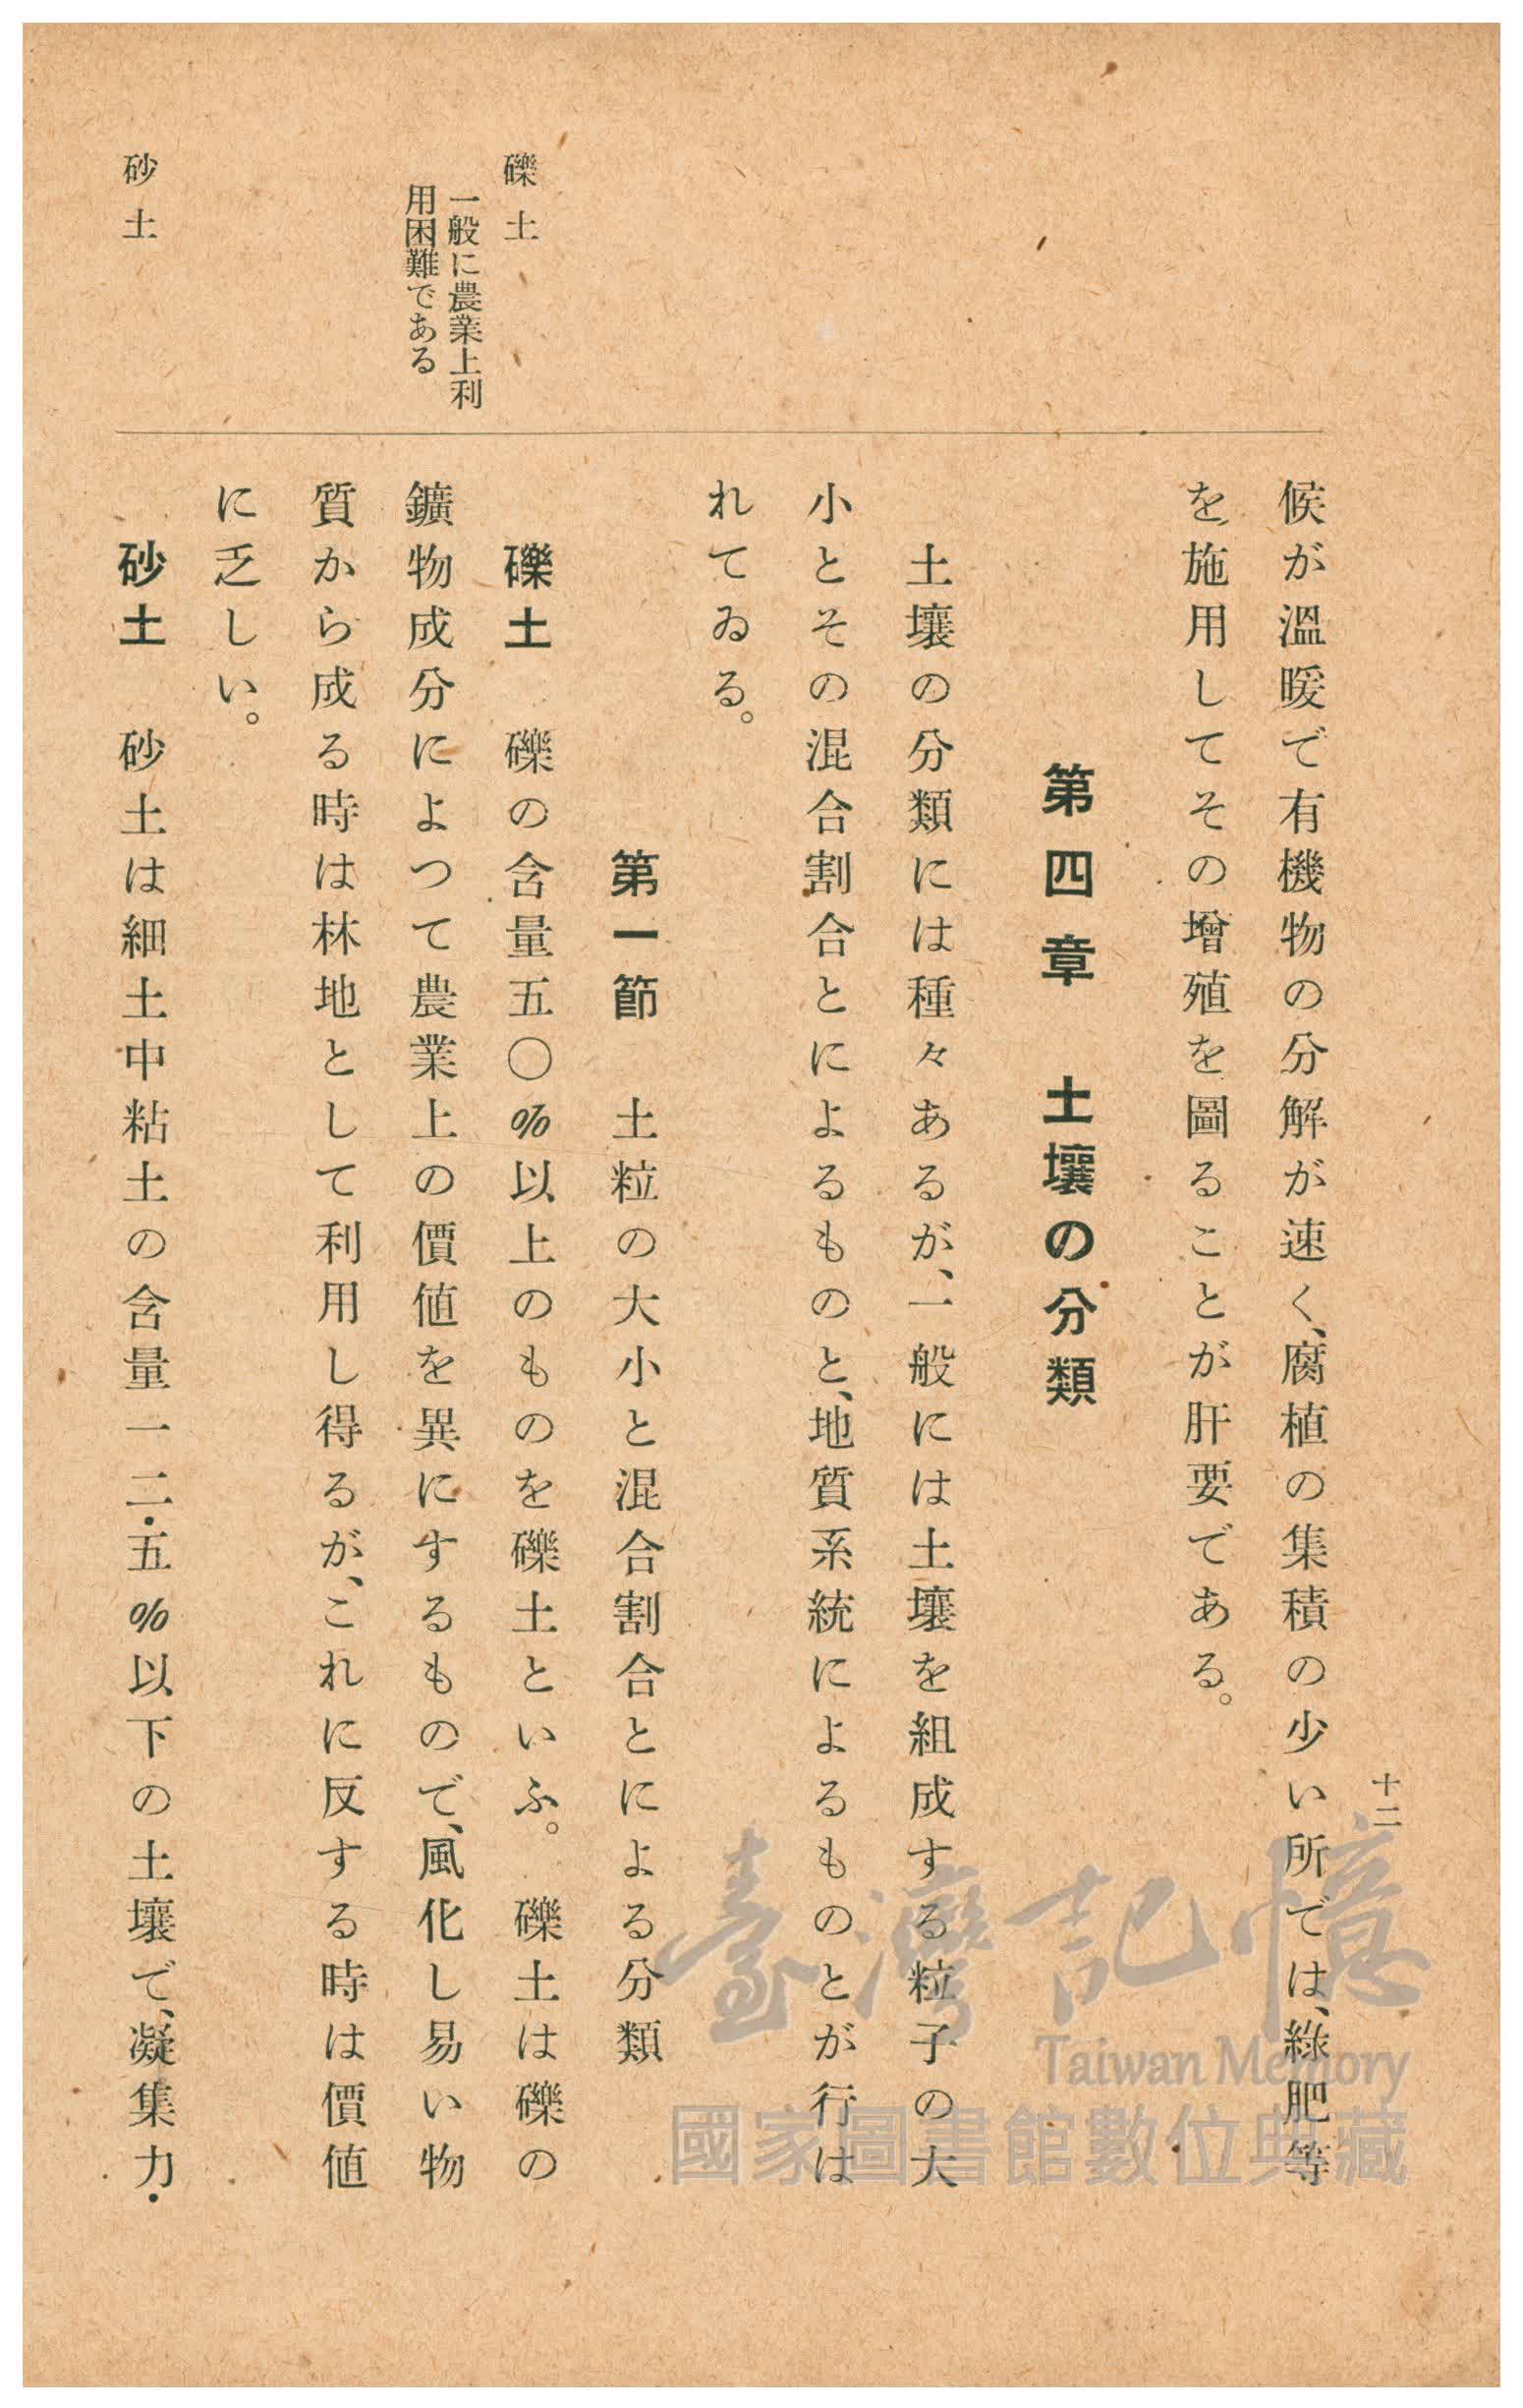 十二
候が溫暖で有機物の分解が速く、腐植の集積の少い所では、綠肥等
を施用してその增殖を圖ることが肝要である。
第四章　土壤の分類
土壤の分類には種々あるが、一般には土壤を組成する粒子の大
小とその混合割合とによるものと、地質系統によるものとが行は
れてゐる。
第一節　土粒の大小と混合割合とによる分類
礫土
一般に農業上利
用困難である
礫土　礫の含量五〇%以上のものを礫土といふ。礫土は礫の
鑛物成分によつて農業上の價値を異にするもので、風化し易い物
質から成る時は林地として利用し得るが、これに反する時は價値
に乏しい。
砂土
砂土　砂土は細土中粘土の含量一二・五%以下の土壤で、凝集力・
臺灣記憶
Taiwan Memory
國家圖書館數位典藏